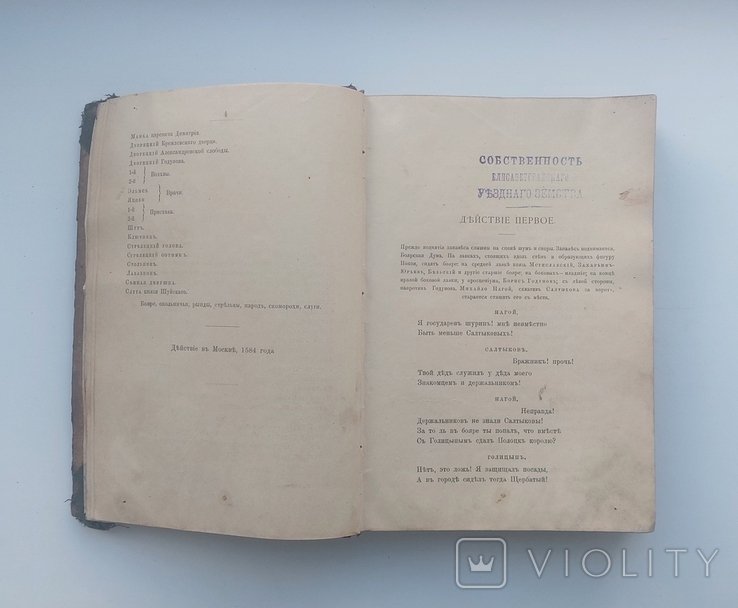 4
Мамка царевича Димитрія.
Дворецкій Кремлевскаго дворца.
Дворецкій Александровской слободы.
Дворецкій Годунова.
1-й
2-й } Волхвы.
Эльмсъ
Якоби } Врачи.
1-й
2-й } Пристава.
Шутъ.
Ключникъ.
Стрѣлецкій голова.
Стрѣлецкій сотникъ.
Стольникъ.
Лабазникъ.
Сѣнная дѣвушка.
Слуга князя Шуйскаго.
Бояре, окольничьи, рынды, стрѣльцы, народъ, скоморохи, слуги.
Дѣйствіе въ Москвѣ, 1584 года
СОБСТВЕННОСТЬ
ЕЛИСАВЕТГРАДСКАГО
УѢЗДНАГО ЗЕМСТВА
ДѢЙСТВІЕ ПЕРВОЕ.
Прежде поднятія занавѣса слышны на сценѣ шумъ и споры. Занавѣсъ поднимается.
Боярская Дума. На лавкахъ, стоящихъ вдоль стѣнъ и образующихъ фигуру
Покоя, сидятъ бояре: на средней лавкѣ князь Мстиславскій, Захарьинъ-
Юрьевъ, Бѣльскій и другіе старшіе бояре; на боковыхъ—младшіе; на концѣ
правой боковой лавки, у просценіума, Борисъ Годуновъ; съ лѣвой стороны,
напротивъ Годунова, Михайло Нагой, схвативъ Салтыкова за воротъ,
старается стащить его съ мѣста.
НАГОЙ.
Я государевъ шуринъ! мнѣ невмѣстно
Быть меньше Салтыковыхъ!
САЛТЫКОВЪ.
Бражникъ! прочь!
Твой дѣдъ служилъ у дѣда моего
Знакомцемъ и держальникомъ!
НАГОЙ.
Неправда!
Держальниковъ не знали Салтыковы!
За то ль въ бояре ты попалъ, что вмѣстѣ
Съ Голицынымъ сдалъ Полоцкъ королю?
ГОЛИЦЫНЪ.
Нѣтъ, это ложь! Я защищалъ посады,
А въ городѣ сидѣлъ тогда Щербатый!
VIOLITY